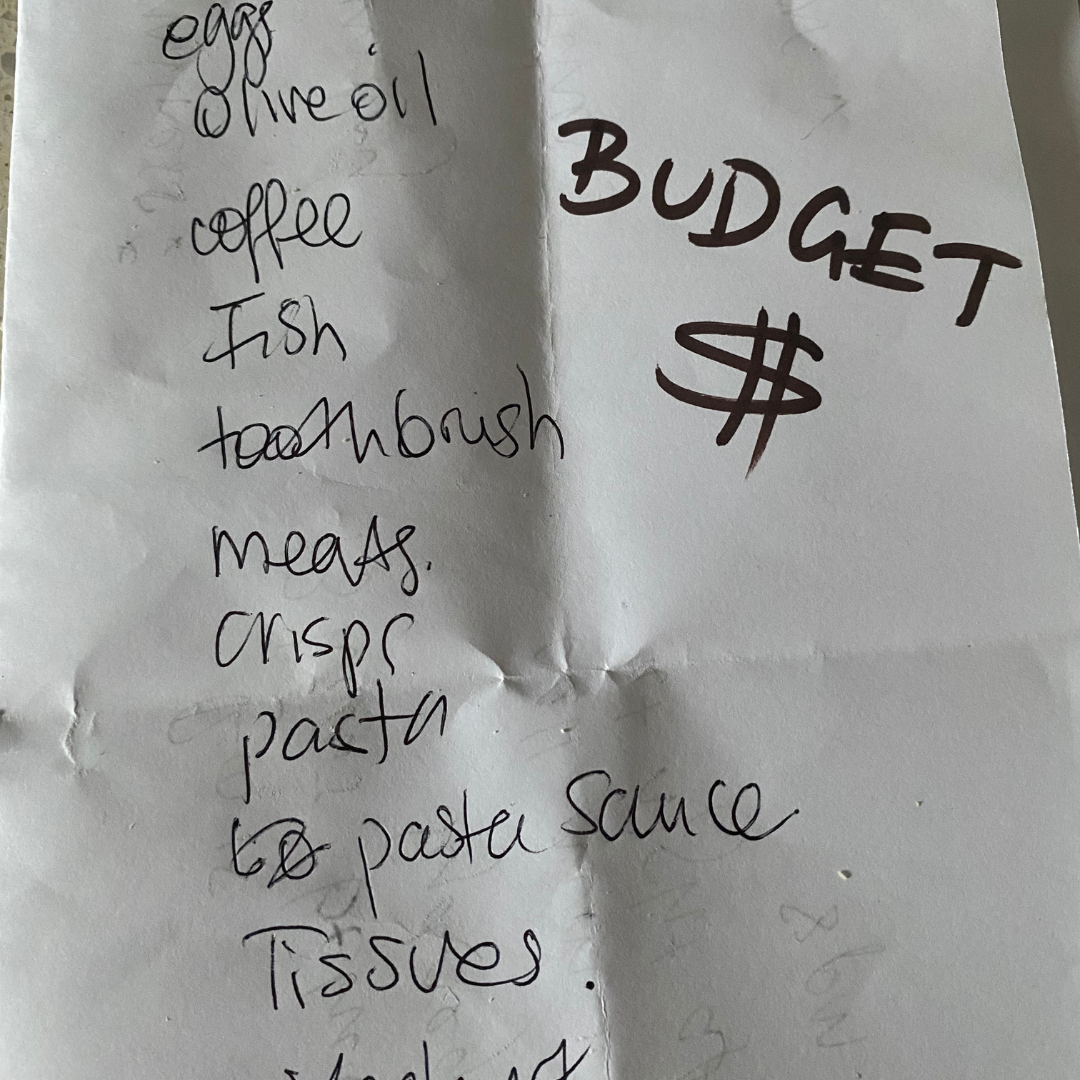 eggs
olive oil
coffee
Fish
toothbrush
meats.
crisps
pasta
pasta sauce
Tissues.
BUDGET
$